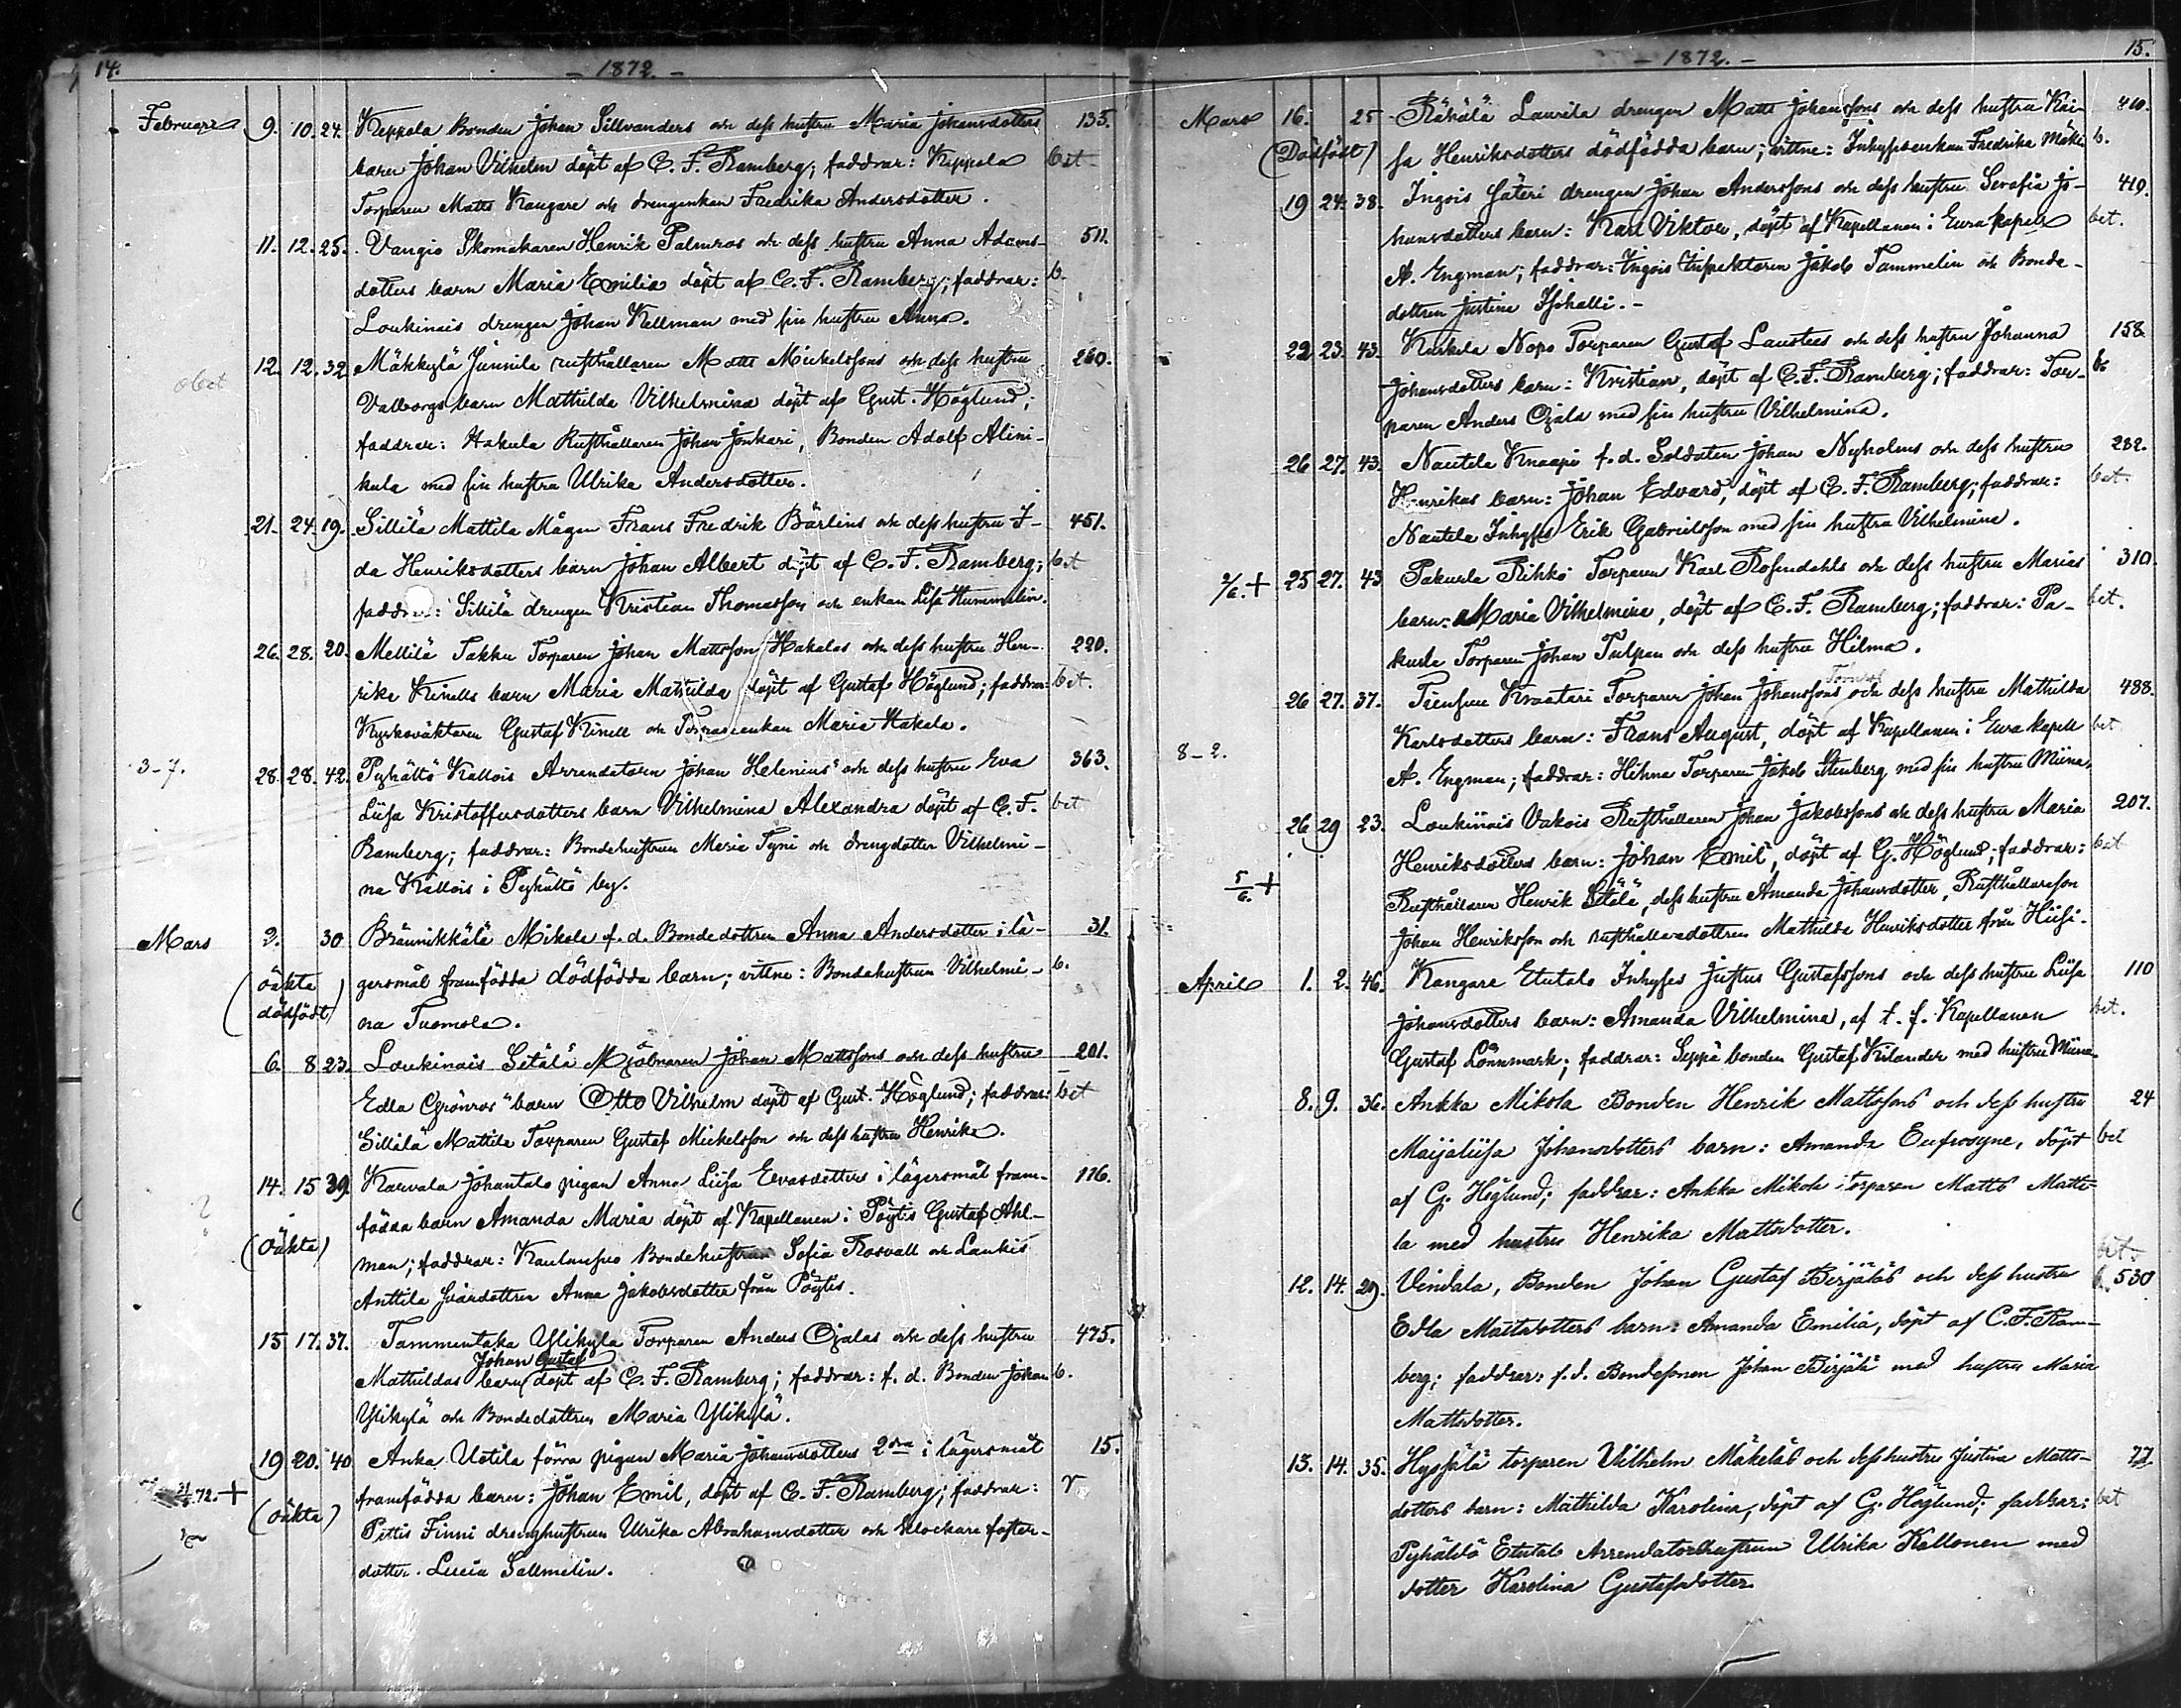 14.
- 1872. -
Februari 9. 10. 24. Keppola Bonden Johan Sillvanders och dess hustru Maria Johansdotters 135.
barn Johan Vilhelm döpt af C. F. Bamberg; faddrar: Keppola bet
Torparen Matts Kangare och drengenkan Fredrika Andersdotter.
11. 12. 25. Vangio Skomakaren Henrik Palmros och dess hustru Anna Adams- 511.
dotters barn Maria Emilia döpt af C. F. Bamberg; faddrar: b.
Loukinais drengen Johan Kellman med sin hustru Anna.
12. 12. 32 Mäkkylä Junnila rusthållaren Matts Mickelssons och dess hustru 260.
obet Valborgs barn Mathilda Vilhelmina döpt af Gust. Höglund;
faddrar: Hakula Rusthållaren Johan Junkari, Bonden Adolf Alini-
kula med sin hustru Ulrika Andersdotter.
21. 24. 19. Sillilä Mattila Mågen Frans Fredrik Bärlins och dess hustru I- 451.
da Henriksdotters barn Johan Albert döpt af C. F. Bamberg; bet
faddrar: Sillilä drengen Kristian Thomasson och enkan Lisa Hummelin.
26. 28. 20. Mellilä Takku Torparen Johan Mattsson Hakalas och dess hustru Hen- 220.
rika Kinells barn Maria Mathilda döpt af Gustaf Höglund; faddrar: bet.
Kyrkoväktaren Gustaf Kinell och Torpareenkan Maria Hakala.
3-7. 28. 28. 42. Pyhältö Kallois Arrendatorn Johan Helenius' och dess hustru Eva 363.
Lisa Kristoffersdotters barn Vilhelmina Alexandra döpt af C. F. bet
Bamberg; faddrar: Bondehustrun Maria Tyni och drengdotter Vilhelmi-
na Kallois i Pyhältö by.
Mars 2. 30 Brännikkälä Mikola f. d. Bondedottren Anna Andersdotter i lä- 31.
(oäkta gersmål framfödda dödfödda barn; vittne: Bondehustrun Vilhelmi- b.
dödfödt) na Tuomola.
6. 8 23. Loukinais Setälä Mjölnaren Johan Mattssons och dess hustru 201.
Edla Grönros' barn Otto Vilhelm döpt af Gust. Höglund; faddrar: bet
Sillilä Mattila Torparen Gustaf Mickelsson och dess hustru Henrika.
14. 15 39. Karvala Juhantalo pigan Anna Lisa Evasdotters i lägersmål fram- 116.
födda barn Amanda Maria döpt af Kapellanen i Pöytis Gustaf Ahl-
(oäkta) man; faddrar: Bondehustrun Sofia Rosvall och Laukis
Anttila Anna Jakobsdotter från Pöytis.
15 17. 37. Tammentaka Ylikylä Torparen Anders Ojalas och dess hustru 475.
Johan Gustaf
Mathildas barn döpt af C. F. Bamberg; faddrar: f. d. Bonden Johan b.
Ylikylä och Bondedottren Maria Ylikylä.
19 20. 40 Anka Uotila förra pigan Maria Johansdotters 2dra i lägersmål 15.
72. + framfödda barn: Johan Emil, döpt af C. F. Bamberg; faddrar:
(oäkta) Pittis Finni drenghustrun Ulrika Abrahamsdotter och klockare foster-
dotter Lucia Sallmelin.
- 1872. -
15.
Mars 16. 25 Rähälä Laurila drengen Matts Johanssons och dess hustru Kai- 410.
(Dödfödt) sa Henriksdotters dödfödda barn; vittne: Inhysesenkan Fredrika Mäki b.
19 24. 38. Ingois Säteri drengen Johan Anderssons och dess hustru Serafia Jo- 419.
hansdotters barn: Karl Viktor, döpt af Kapellanen i Eura kapell bet.
A. Engman; faddrar: Ingois Inspektoren Jakob Tammelin och Bonde-
dottren Justina Isohalli. -
22 23. 43. Kuskela Nopo Torparen Gustaf Laustees och dess hustru Johanna 158
Johansdotters barn: Kristian, döpt af C. F. Bamberg; faddrar: Tor- b.
paren Anders Ojala med sin hustru Vilhelmina.
26 27. 43. Nautela Knaapi f. d. Soldaten Johan Nyholms och dess hustru 282.
Henrikas barn: Johan Edvard, döpt af C. F. Bamberg; faddrar: bet.
Nautela Inhyses Erik Gabrielsson med sin hustru Vilhelmina.
2/6. + 25 27. 43 Pakurla Rihko Torparen Karl Rosendahls och dess hustru Marias 310
barn: Maria Vilhelmina, döpt af C. F. Bamberg; faddrar: Pa- bet.
kurla Torparen Johan Tulpan och dess hustru Hilma.
26 27. 37. Kraatari Torparen Johan Johanssons och dess hustru Mathilda 488.
Karlsdotters barn: Frans August, döpt af Kapellanen i Eura kapell bet
8-2. A. Engman; faddrar: Hihna Torparen Jakob Stenberg med sin hustru Miina.
26 29 23. Loukinais Vakois Rusthållaren Johan Jakobssons och dess hustru Maria 207.
Henriksdotters barn: Johan Emil, döpt af G. Höglund; faddrar: bet
5/6. + Rusthållaren Henrik Setälä, dess hustru Amanda Johansdotter, Rusthållareson
Johan Henriksson och rusthållaredottren Mathilda Henriksdotter från Hiisi.
April 1. 2. 46. Kangare Etutalo Inhyses Justus Gustafssons och dess hustru Liisa 110
Johansdotters barn: Amanda Vilhelmina, af t. f. Kapellanen bet.
Gustaf Lönnmark; faddrar: Seppä bonden Gustaf Kilander med hustru Miina.
8. 9. 36. Ankka Mikola Bonden Henrik Mattssons och dess hustru 24
Maijaliisa Johansdotters barn: Amanda Eufrosyne, döpt bet
af G. Höglund; faddrar: Ankka Mikola torparen Matts Matti-
la med hustru Henrika Mattsdotter.
bet.
12. 14. 29. Vindala, Bonden Johan Gustaf Birjäläs och dess hustru 530
Edla Mattsdotters barn: Amanda Emilia, döpt af C. F. Bam-
berg; faddrar: f. d. Bondesonen Johan Birjälä med hustru Maria
Mattsdotter.
13. 14. 35. torparen Vilhelm Mäkeläs och dess hustru Justina Matts- 77.
dotters barn: Mathilda Karolina, döpt af G. Höglund; faddrar: bet
Pyhältö Etutalo Arrendatorhustrun Ulrika Kallonen med
dotter Karolina Gustafsdotter.